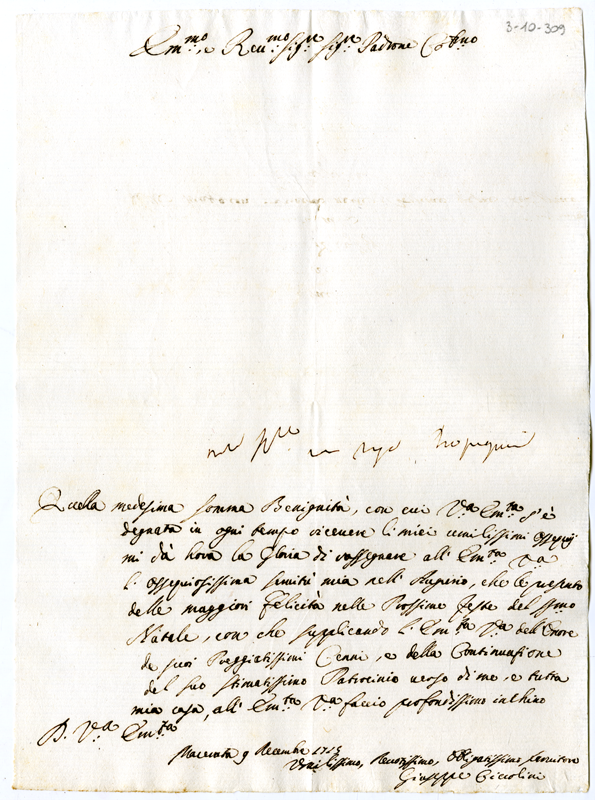 3-10-309
Em.mo e Reu.mo Sig.re Sig.re Padrone Col.mo
Quella medesima somma Benignità, con cui V.a Em.za s'è
degnata in ogni tempo riceuere li miei umilissimi ossequij
mi dà hora la Gloria di rassegnare all' Em.za V.a
l' ossequiosissima seruitù mia nell' Augurio, che le presento
delle maggiori felicità nelle Prossime feste del S.mo
Natale, con che supplicando l' Em.za V.a dell' Onore
de suoi Preggiatissimi Cenni, e della Continuazione
del suo stimatissimo Patrocinio uerso di me, e tutta
mia casa, all' Em.za V.a faccio profondissimo inchino
D. V.a Em.za
Macerata 9 Decembre 1715
Umilissimo, Deuotissimo, Obligatissimo Seruitore
Giuseppe Ciccolini